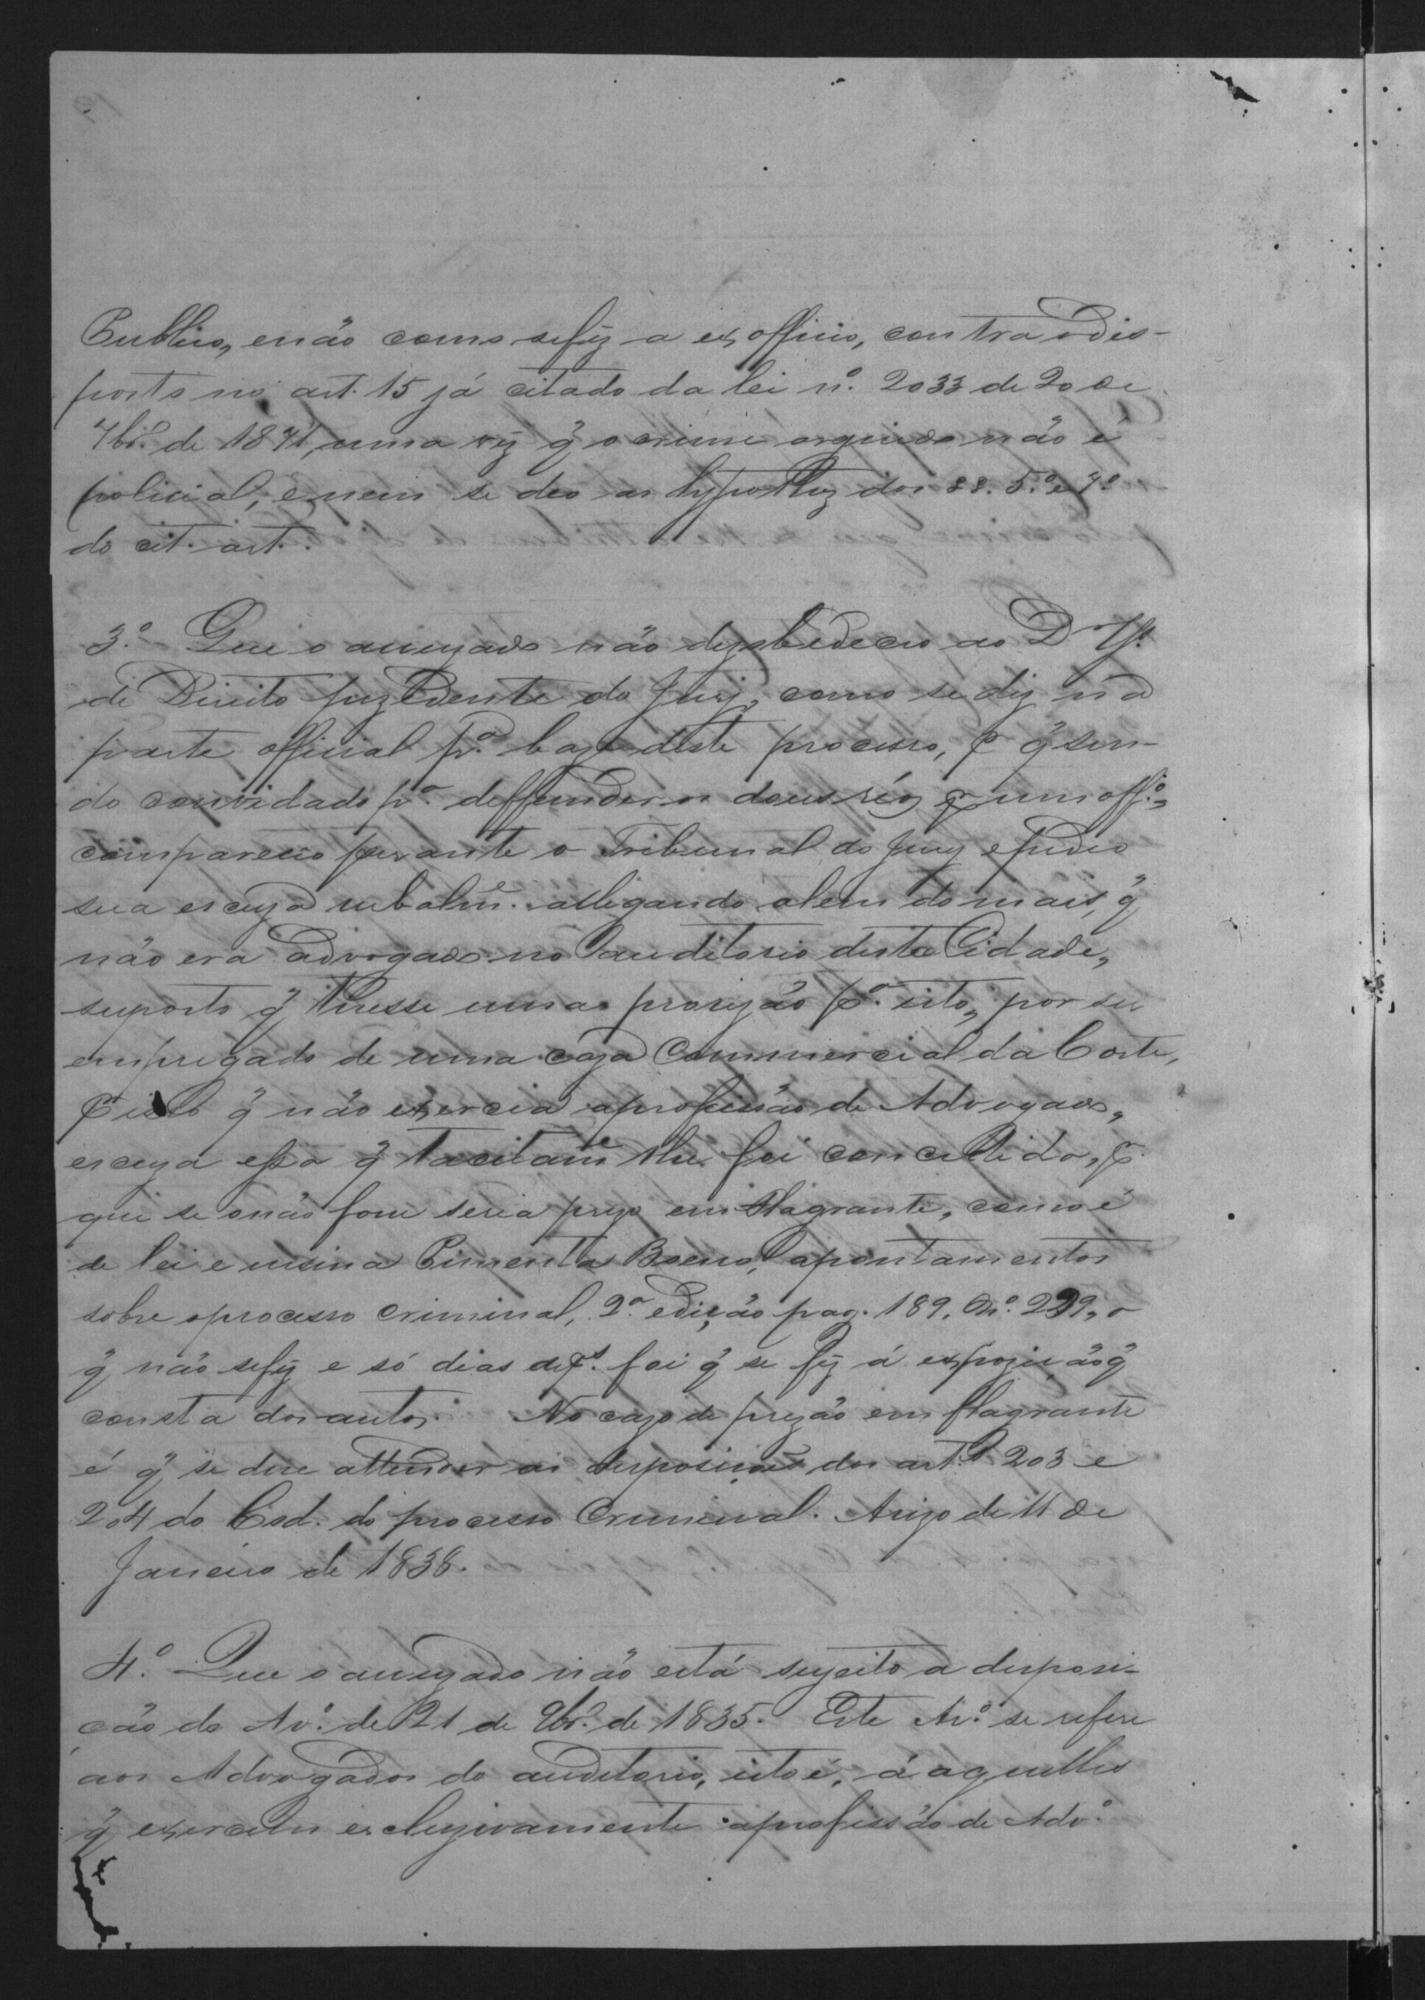 Publico, e não como se fez a ex officio, contra o dis-
posto no art. 15 já citado da lei nº. 2033 de 20 de
7br.º de 1871, uma vez q̃ o crime arguido não é
policial, e nem se deo as hypothez dos §§. 5.º e 7.º
do cit. art.
3.º Que o accuzado não dezobedeceo ao Dr. Jz.
de Direito Prezidente do Jury, como se diz na
parte official pª. baze deste processo, p q̃ sen-
do convidado pª. deffender os dous réoz p um offº.,
compareceo perante o Tribunal do Jury e pedio
sua escuza verbalm.e allegando alem do mais, q̃
não era advogado no auditorio desta Cidade,
suposto q̃ tivesse uma provizão pª. isto, por ser
empregado de uma caza Commercial da Corte,
p isto q̃ não exercia a profissão de Advogado,
escuza essa q̃ tacitam.e lhe foi concedida, p
que se o não fosse seria prezo em flagrante, como é
de lei e ensina Pimenta Bueno, apontamentos
sobre o processo criminal, 2.ª edição pag. 189, nº. 229, o
q̃ não se fez e só dias dep.s foi q̃ se fez á expozição q̃
consta dos autos. No cazo de prizão em flagrante
é q̃ se deve attender as disposições dos art.s 203 e
204 do Cod. do processo Criminal. Avizo de 11 de
Janeiro de 1838.
4.º Que o accuzado não está sujeito a disposi-
ção do Av.º de 21 de 9br.º de 1835. Este Av.º se refere
aos Advogados do auditorio, isto é, á aquelles
q̃ exercem excluzivamente a profissão de Adv.º